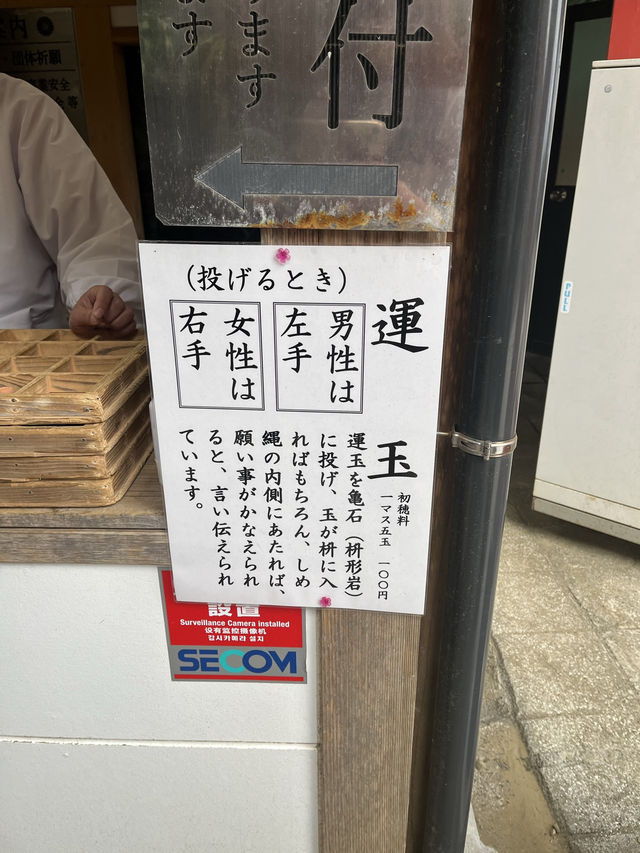 案内
・団体祈願
業安全
等
付
ます
ます
(投げるとき)
運玉
男性は
左手
女性は
右手
初穂料
一マス五玉 一〇〇円
運玉を亀石(枡形岩)
に投げ、玉が枡に入
ればもちろん、しめ
縄の内側にあたれば、
願い事がかなえられ
ると、言い伝えられ
ています。
設置
Surveillance Camera installed
设有监控摄像机
감시카메라 설치
SECOM
PULL